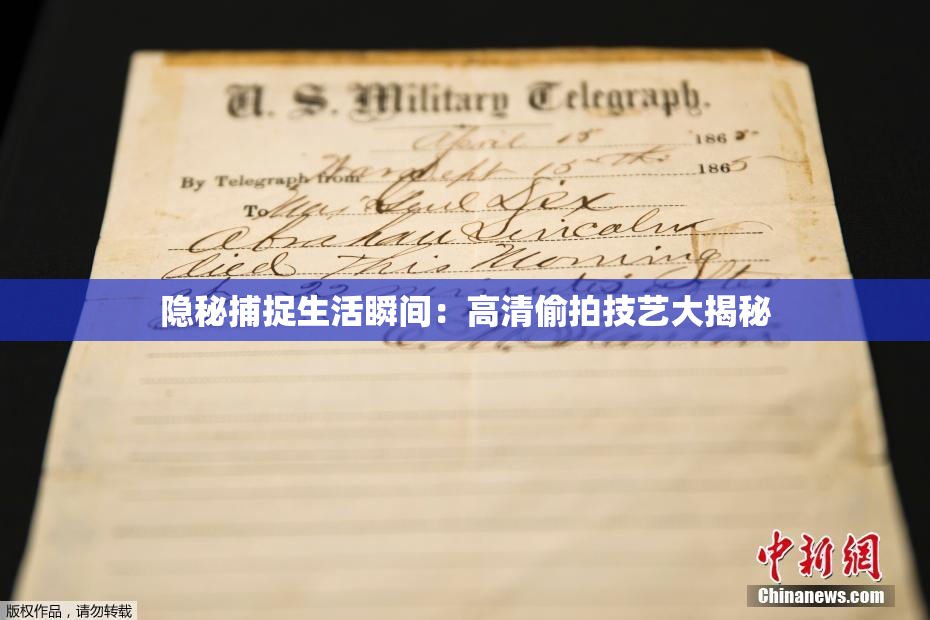 U. S. Military Telegraph.
April 15 1865
By Telegraph from War Dept 15th 1865
To Maj Genl Dix
Abraham Lincoln
died This Morning
at 22 minutes after
隐秘捕捉生活瞬间：高清偷拍技艺大揭秘
E. M. Stanton
中新网
Chinanews.com
版权作品，请勿转载